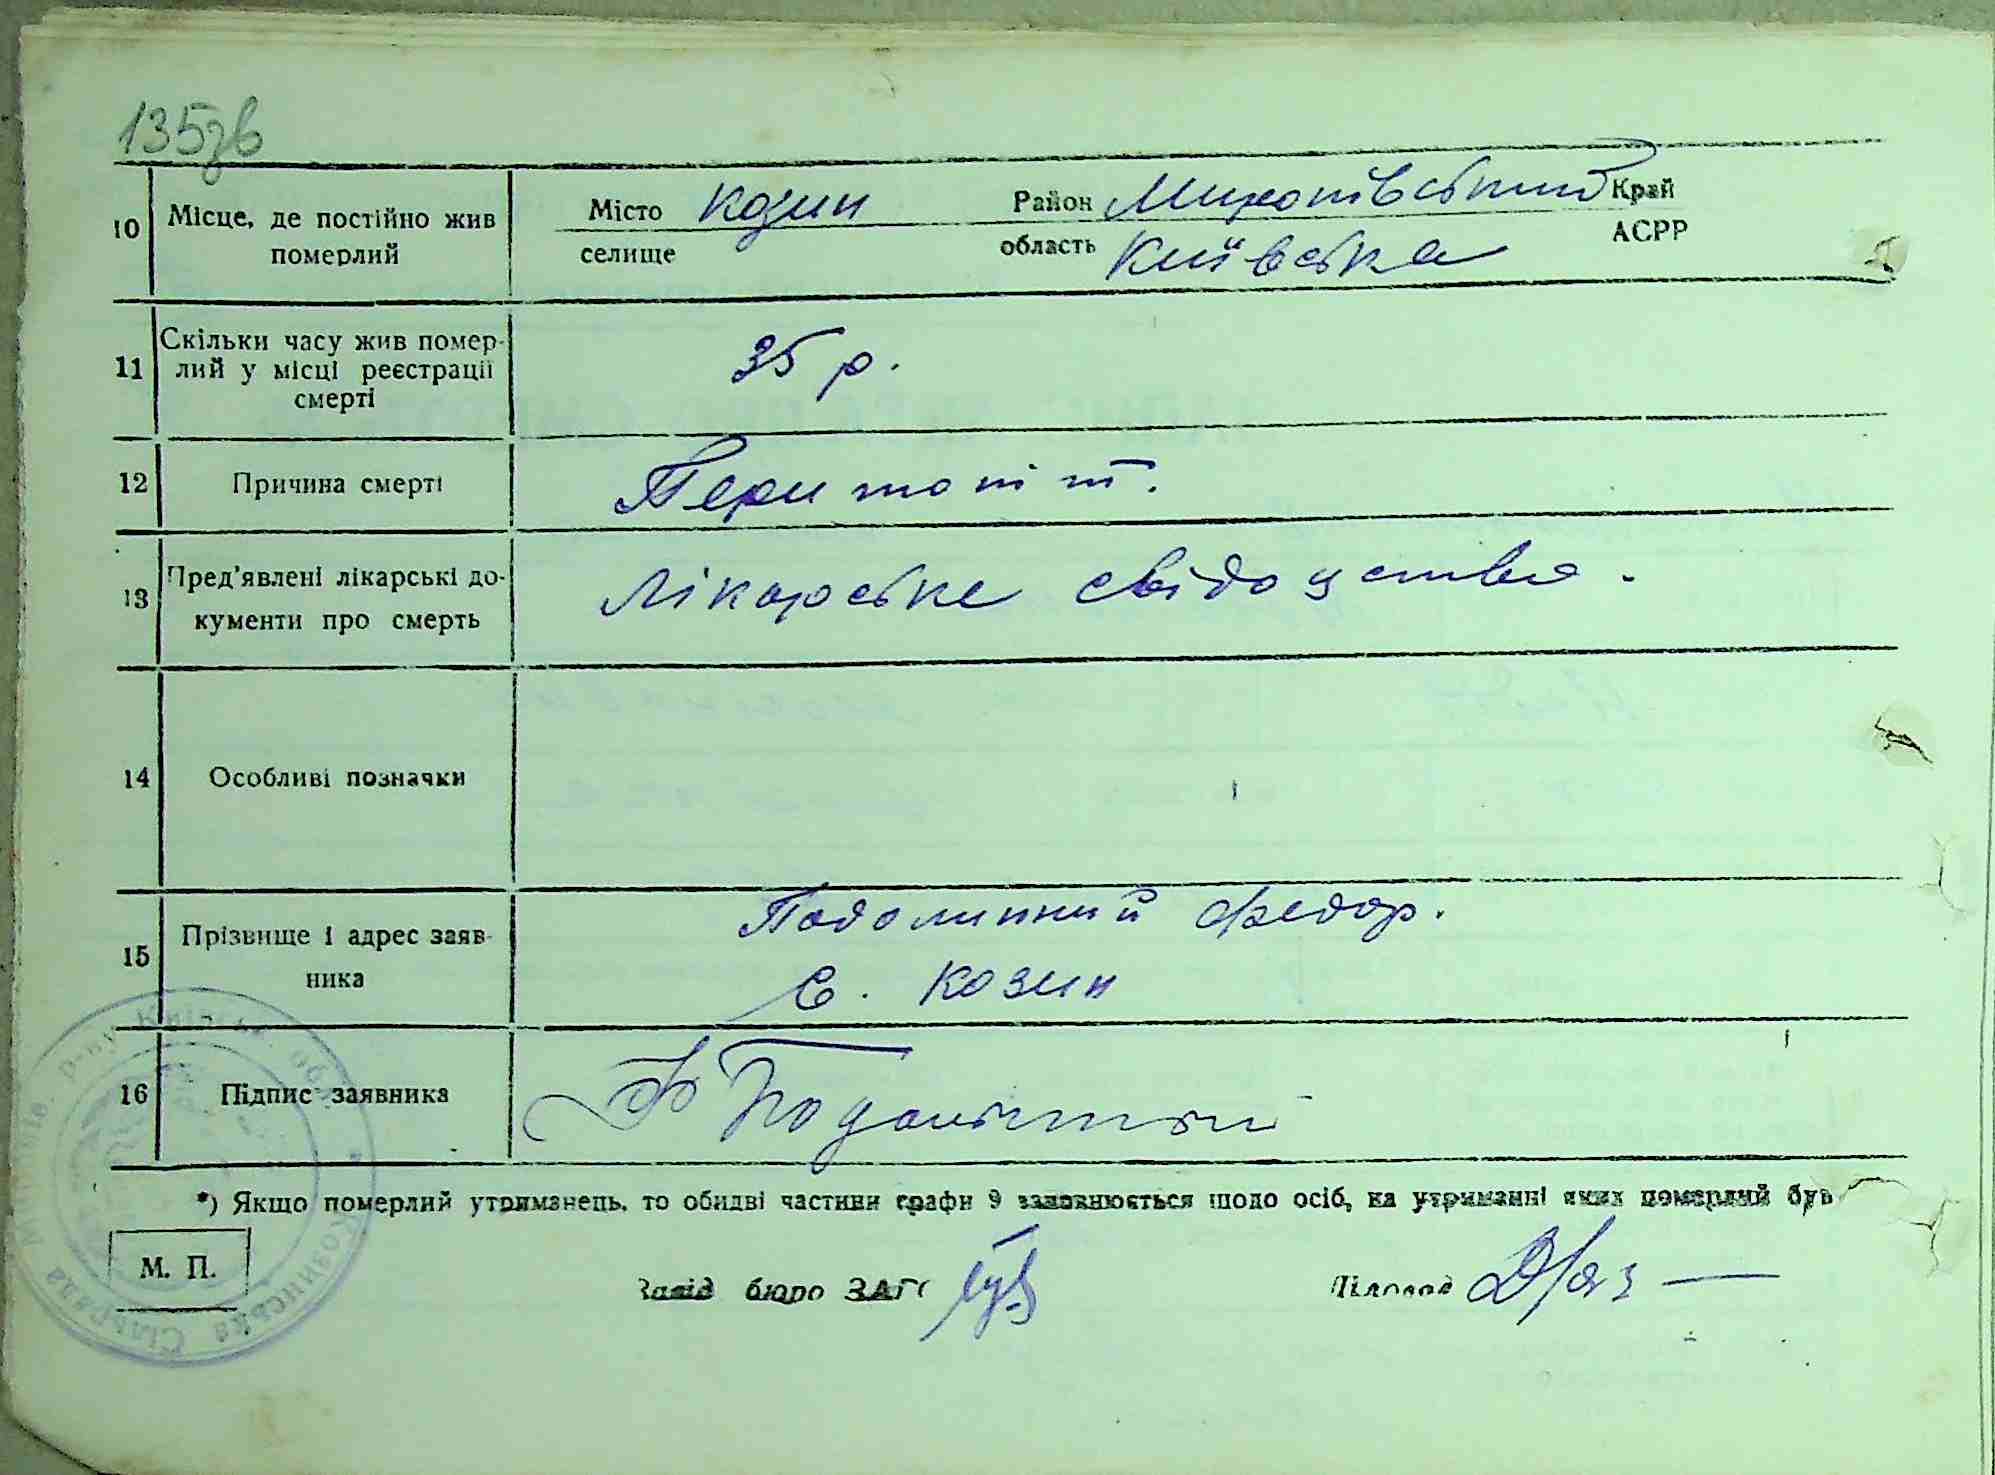 135зв
10 Місце, де постійно жив померлий Місто селище Козин Район Миронівський Край
область Київська АСРР
11 Скільки часу жив помер-
лий у місці реєстрації
смерті 35 р.
12 Причина смерті Перитоніт.
13 Пред'явлені лікарські до-
кументи про смерть Лікарське свідоцтво.
14 Особливі позначки
15 Прізвище і адрес заяв-
ника Подолинний Федор.
с. Козин
16 Підпис заявника Ф Подолинний
*) Якщо померлий утриманець, то обидві частини графи 9 заповнюється щодо осіб, на утриманні яких померлий був
М. П. Завід бюро ЗАГС Діловод
Миронів. р-ну Київськ. обл. * Козинська Сільрада